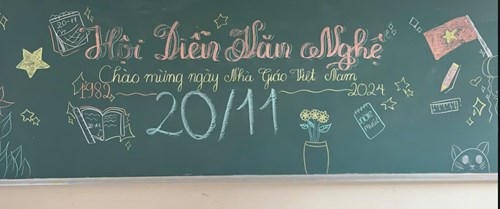 20-11
Hội Diễn Văn Nghệ
Chào mừng ngày Nhà Giáo Việt Nam
1982
2024
20/11